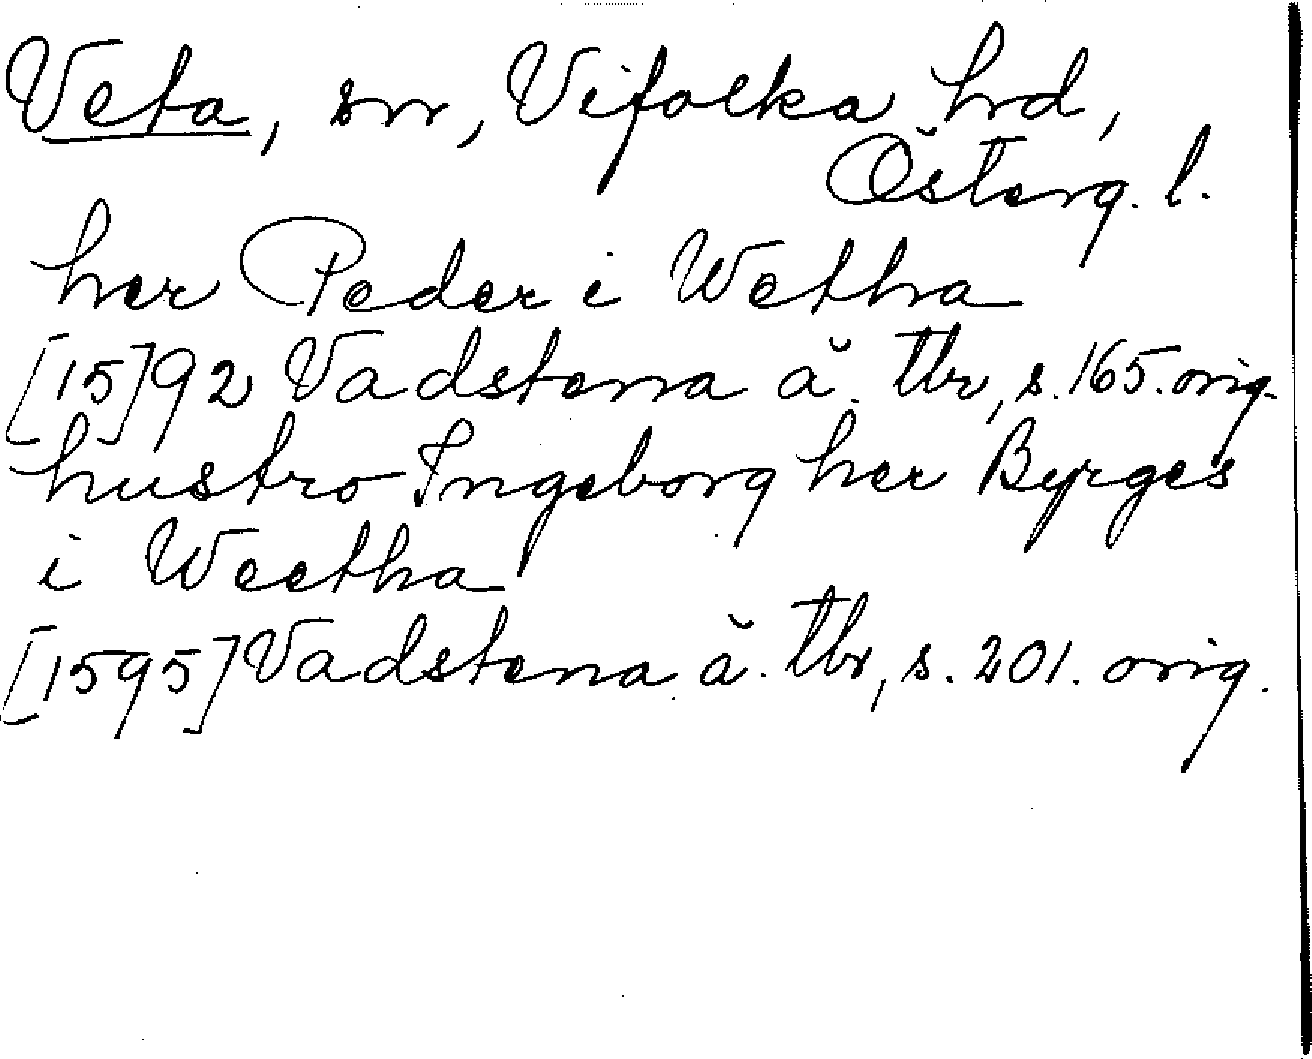 Veta, sn, Vifolka hrd,
Österg. l.
her Peder i Wetha
[15]92 Vadstena ä. tbr, s. 165. orig.
hustro Ingeborg her Byrges
i Weetha
[1595] Vadstena ä. tbr, s. 201. orig.